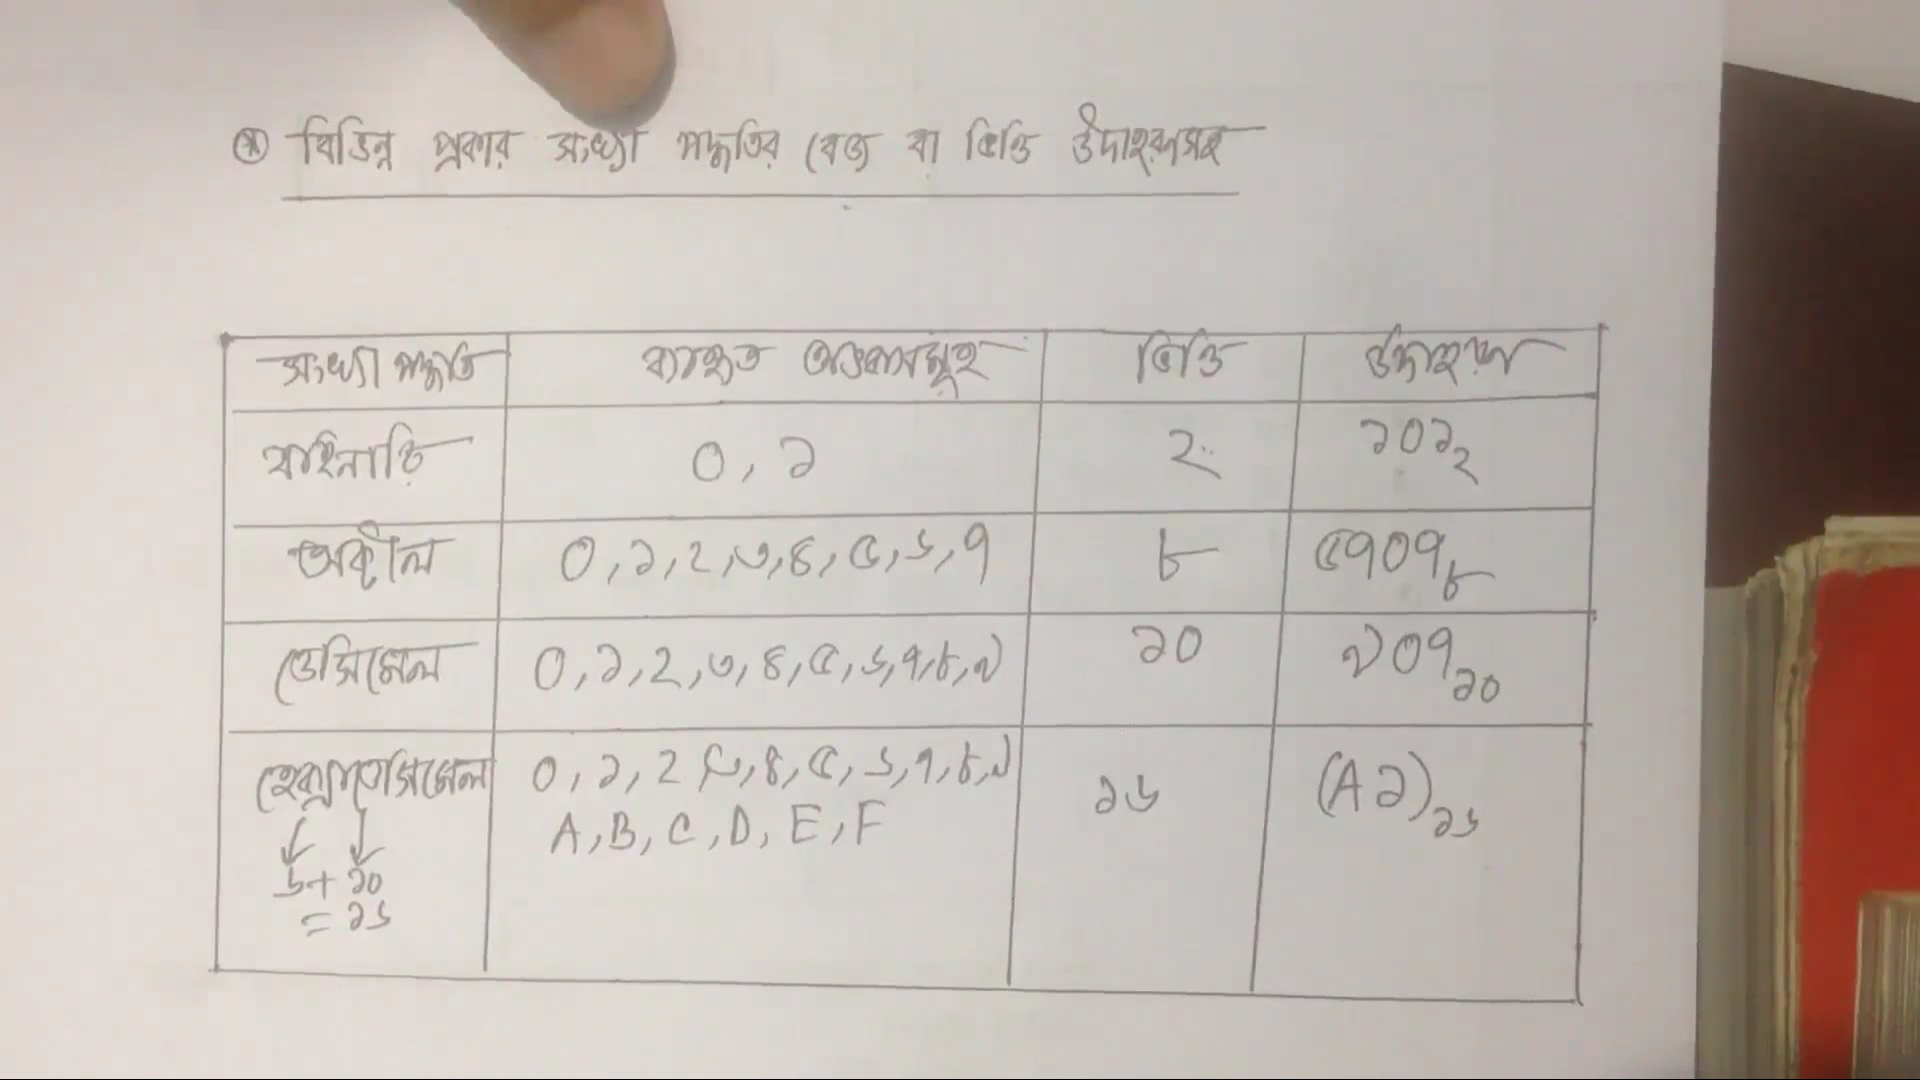 ⊛ বিভিন্ন প্রকার সংখ্যা পদ্ধতির বেজ বা ভিত্তি উদাহরণসহ
সংখ্যা পদ্ধতি ব্যবহৃত অংকসমূহ ভিত্তি উদাহরণ
বাইনারি ০, ১ ২ ১০১₂
অক্টাল ০, ১, ২, ৩, ৪, ৫, ৬, ৭ ৮ ৫৭০৭৮
ডেসিমেল ০, ১, ২, ৩, ৪, ৫, ৬, ৭, ৮, ৯ ১০ ৯০৭১০
হেক্সাডেসিমেল ০, ১, ২, ৩, ৪, ৫, ৬, ৭, ৮, ৯ ১৬ (A১)১৬
A, B, C, D, E, F
৬+১০
= ১৬